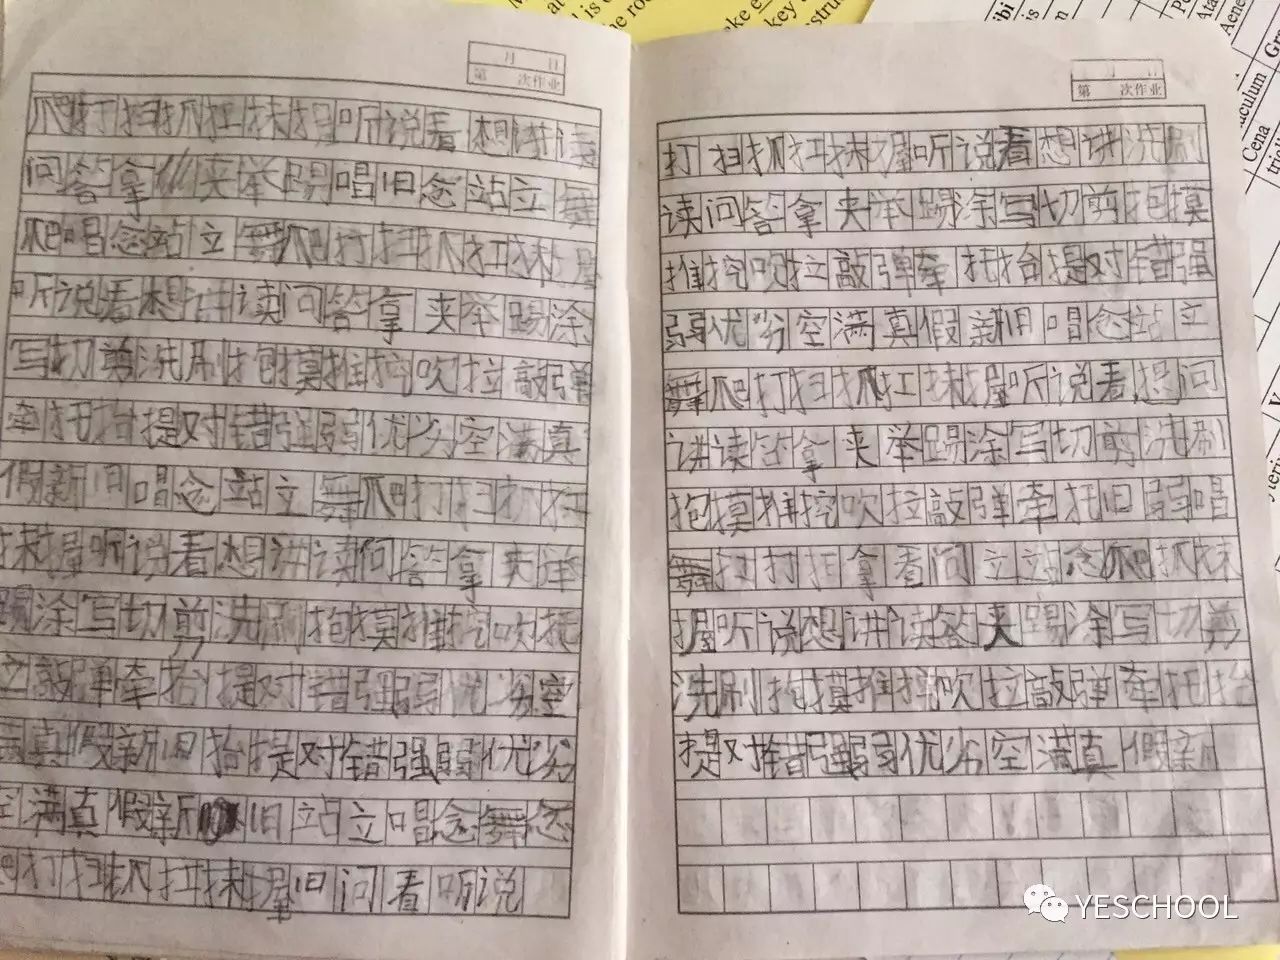 月 日
第 次作业
爬打扫抓扛抹握听说看想讲读
问答拿夹举踢唱旧念站立舞
爬唱念站立舞爬打扫抓扛抹握
听说看想讲读问答拿夹举踢涂
写切剪洗刷抱摸推挖吹拉敲弹
牵托抬提对错强弱优劣空满真
假新旧唱念站立舞爬打扫抓扛
抹握听说看想讲读问答拿夹举
踢涂写切剪洗刷抱摸推挖吹托
立敲弹牵抬提对错强弱优劣空
满真假新旧抬提对错强弱优劣
空满真假新旧站立唱念舞念
爬打扫抓扛抹握旧问看听说
月 日
第 次作业
打扫抓扛抹握听说看想讲洗刷
读问答拿夹举踢涂写切剪抱摸
推挖吹拉敲弹牵托抬提对错强
弱优劣空满真假新旧唱念站立
舞爬打扫抓扛抹握听说看想问
讲读答拿夹举踢涂写切剪洗刷
抱摸推挖吹拉敲弹牵托旧弱唱
舞扫打扛拿看问立站念爬抓抹
握听说想讲读答夹踢涂写切剪
洗刷抱摸推挖吹拉敲弹牵托抬
提对错强弱优劣空满真假新
YESCHOOL